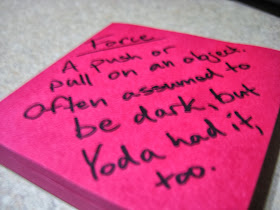 Force
A push or
pull on an object.
Often assumed to
be dark, but
Yoda had it,
too.